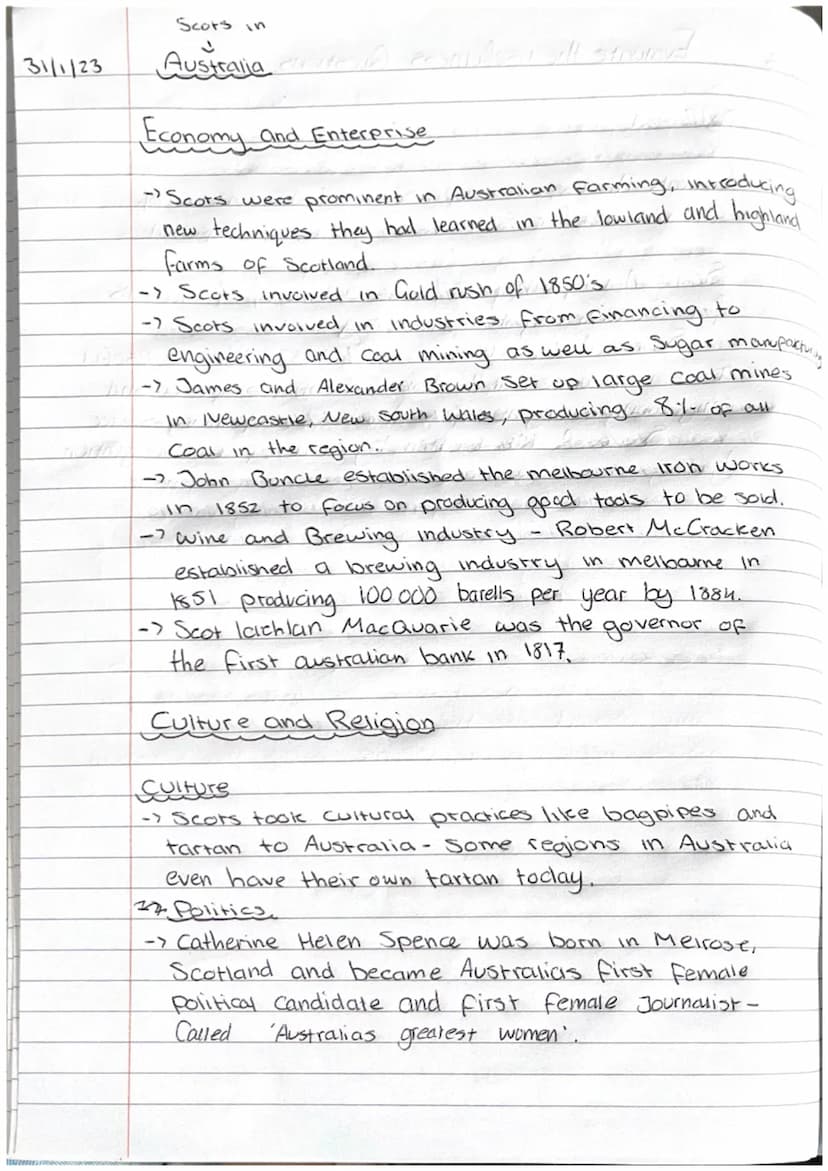 Scots in
↓
31/1/23 Australia
Economy and Enterprise
-> Scots were prominent in Australian farming, introducing
new techniques they had learned in the lowland and highland
farms of Scotland.
-> Scots involved in Gold rush of 1850's
-> Scots involved in industries from financing to
engineering and coal mining as well as sugar manufacturing
-> James and Alexander Brown set up large coal mines
in Newcastle, New South Wales, producing 8% of all
coal in the region.
-> John Buncle established the melbourne iron works
in 1852 to focus on producing good tools to be sold.
-> Wine and Brewing industry - Robert McCracken
established a brewing industry in melbourne in
1851 producing 100 000 barells per year by 1884.
-> Scot lachlan MacQuarie was the governor of
the first australian bank in 1817.
Culture and Religion
Culture
-> Scots took cultural practices like bagpipes and
tartan to Australia - Some regions in Australia
even have their own tartan today.
Politics
-> Catherine Helen Spence was born in Melrose,
Scotland and became Australias first female
political candidate and first female Journalist -
Called 'Australias greatest women'.